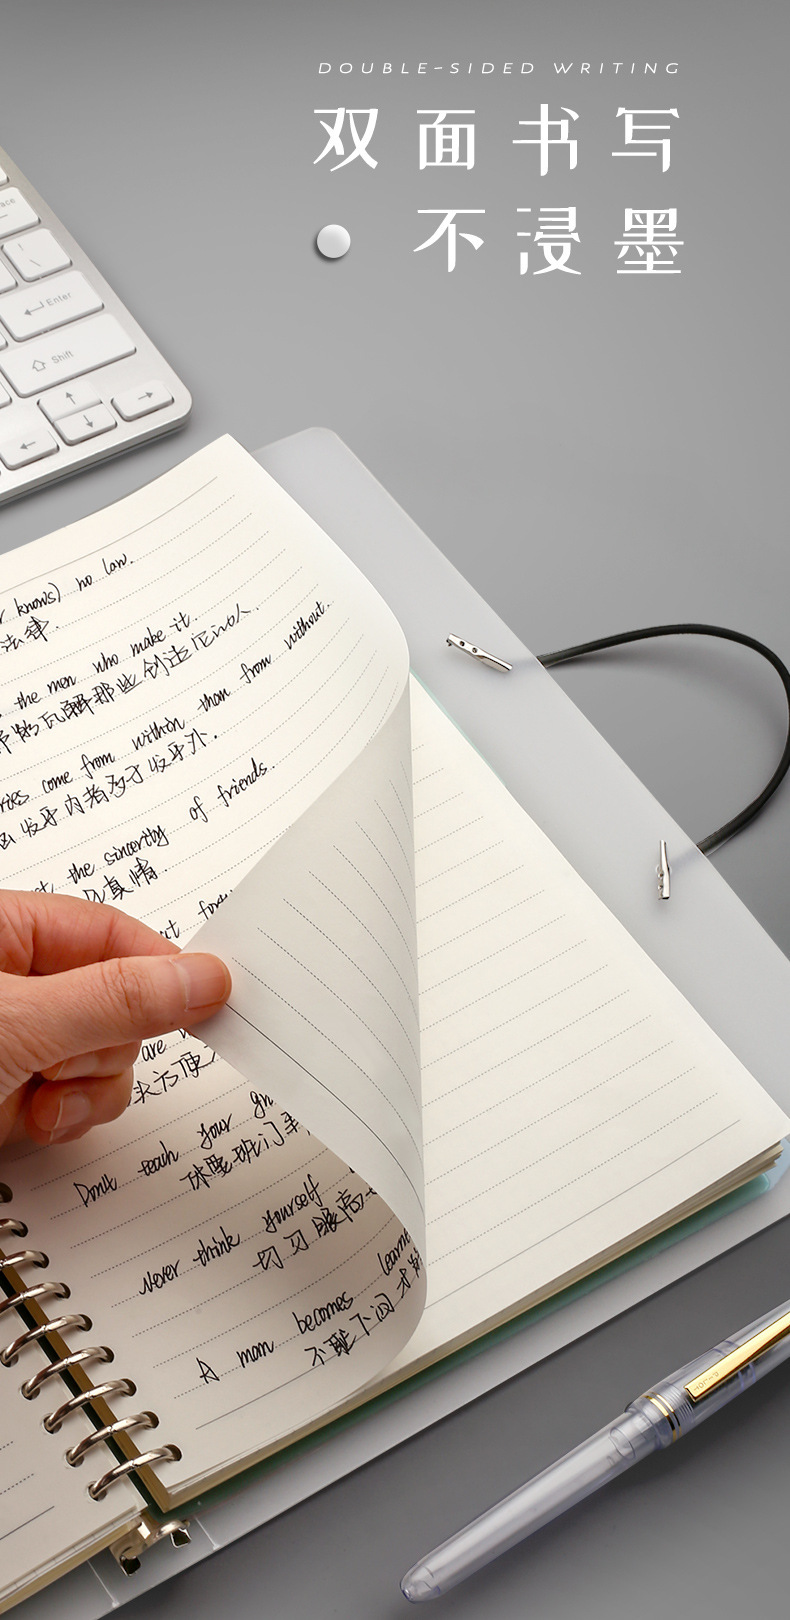 DOUBLE-SIDED WRITING
双面书写
不浸墨
Enter
Shift
knows) no law.
法律.
the men who make it.
瓦解那些创造它的人.
come from within than from without.
the sincerity of friends.
真情
are
Don't teach your
班门
Never think yourself
切习眼高
A man becomes
不耻下问才